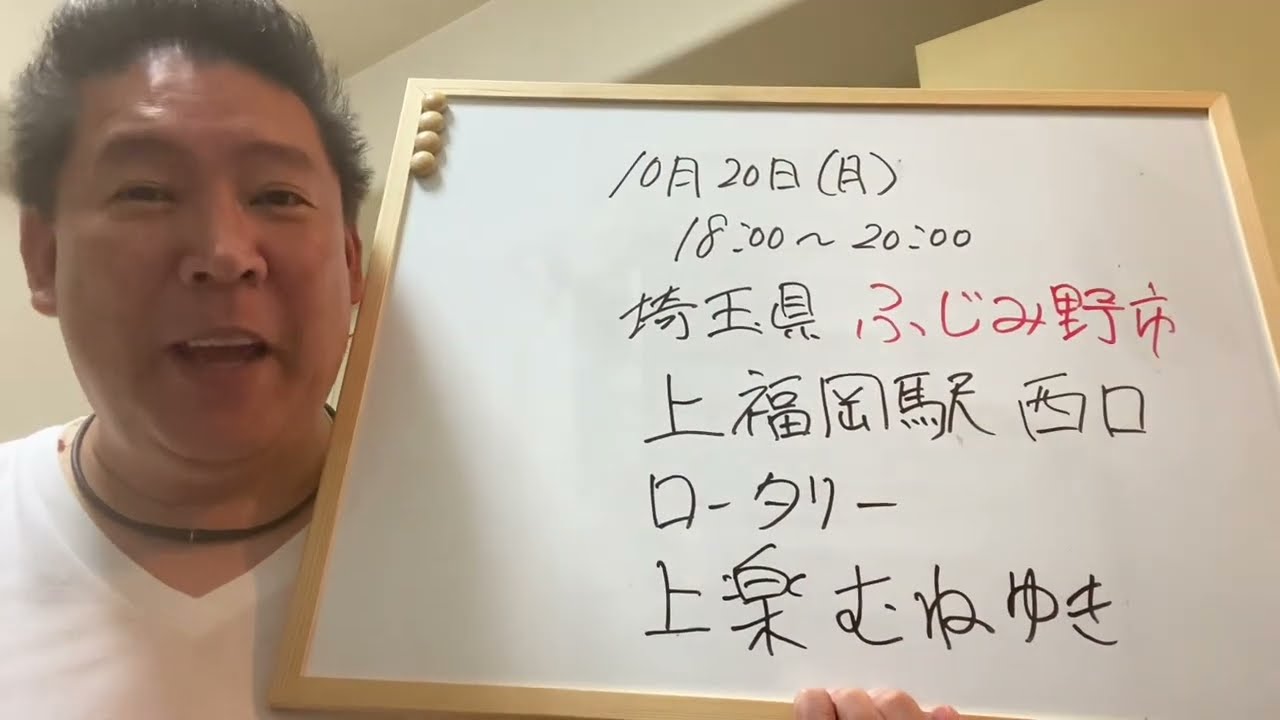 10月20日(月)
18:00~20:00
埼玉県 ふじみ野市
上福岡駅 西口
ロータリー
上楽 むねゆき